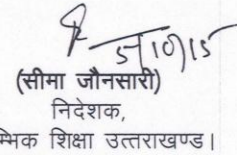 5/10/15
(सीमा जौनसारी)
निदेशक,
म्भिक शिक्षा उत्तराखण्ड।